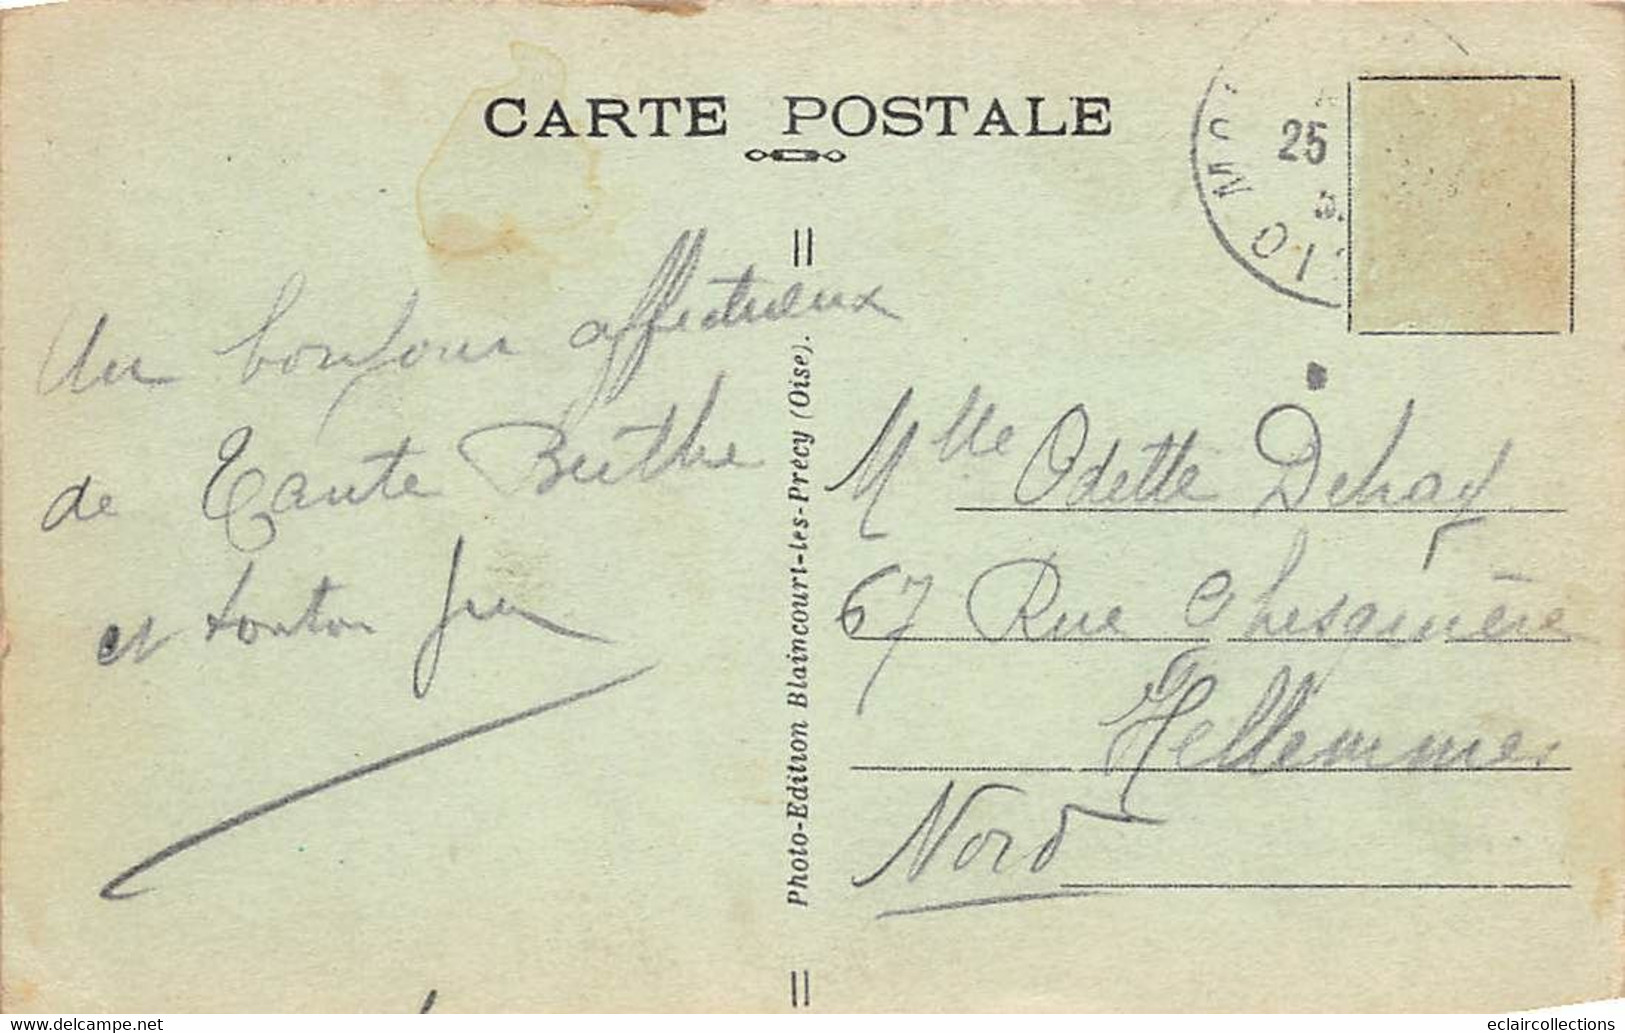 CARTE POSTALE
25
Un bonjour affectueux
de Tante Berthe
et tonton
Photo-Edition Blaincourt-les-Précy (Oise).
Mlle Odette Dehay
67 Rue Ghesquière
Hellemmes
Nord
www.delcampe.net
eclaircollections